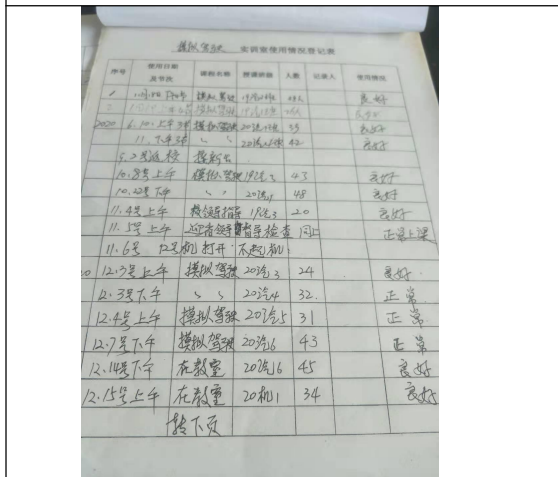 模拟驾驶 实训室使用情况登记表
序号 使用日期及节次 课程名称 授课班级 人数 记录人 使用情况
1 模拟驾驶 良好
2 模拟驾驶
2020 6.10.上午 模拟驾驶 33 良好
11.下午 〃 〃 42 良好
10.8号上午 模拟驾驶 19汽3 43 良好
10.22号下午 〃 〃 48 良好
11.4号上午 校领导指导 19汽3 20 良好
11.5号上午 迎省领导督导检查 同上 正常上课
11.6号 12号机打开不起机
12.3号上午 模拟驾驶 20汽3 24 良好
12.3号下午 〃 〃 20汽4 32. 正常
12.4号上午 模拟驾驶 20汽5 31 正常
12.7号下午 模拟驾驶 20汽6 43 正常
12.14号下午 在教室 20汽6 45 良好
12.15号上午 在教室 20机1 34 良好
转下页